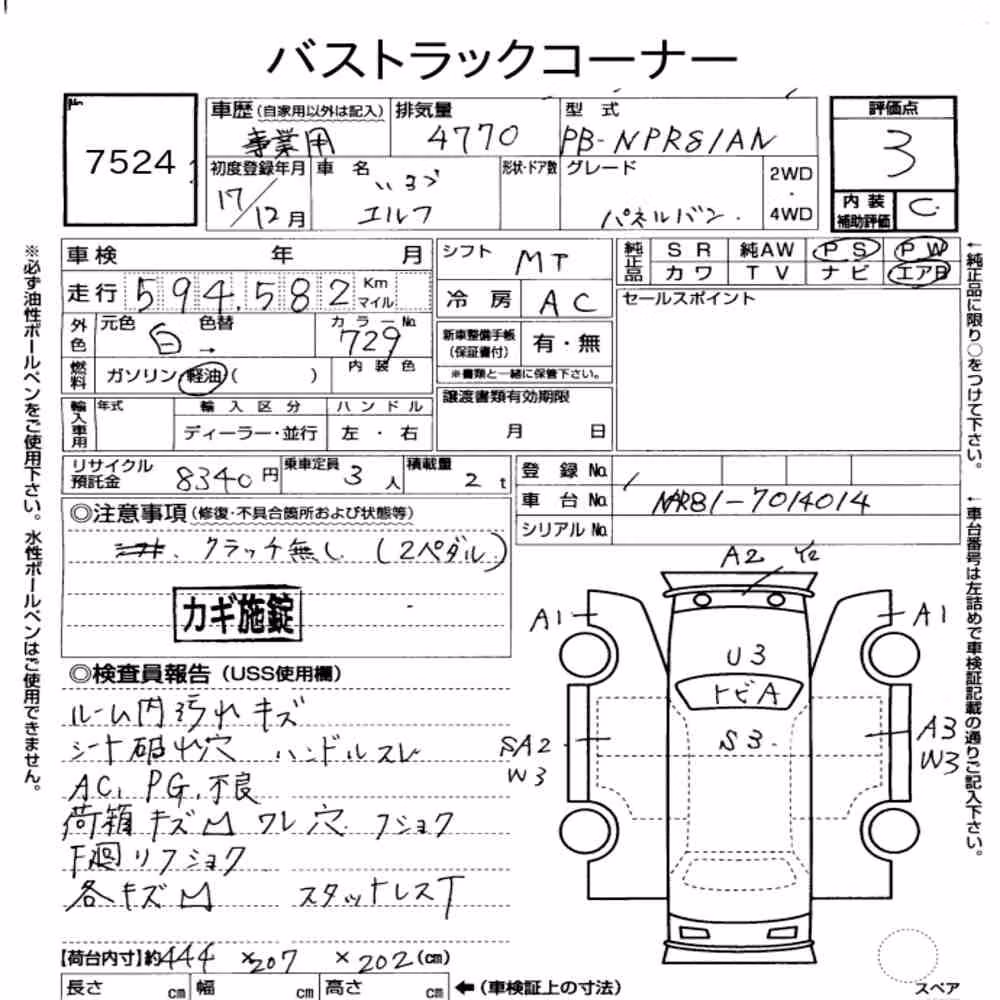 バストラックコーナー
No.
7524
車歴 (自家用以外は記入) 事業用
排気量 4770
型式 PB-NPR81AN
評価点 3
初度登録年月 17/12月
車名 いすゞ エルフ
形状・ドア数
グレード パネルバン
2WD・4WD
内装補助評価 C
車検 年 月
走行 594,582 Km マイル
外色 元色 白 → 色替
カラーNo. 729
燃料 ガソリン 軽油 ( )
内装色
輸入車用 年式
輸入区分 ディーラー・並行
ハンドル 左・右
シフト MT
冷房 AC
新車整備手帳(保証書付) 有・無
※書類と一緒に保管下さい。
譲渡書類有効期限
月 日
純正品 SR 純AW PS PW
カワ TV ナビ エアB
セールスポイント
リサイクル預託金 8340円
乗車定員 3人
積載量 2t
登録No.
車台No. NPR81-7014014
シリアルNo.
◎注意事項 (修復・不具合箇所および状態等)
クラッチ無し (2ペダル)
カギ施錠
◎検査員報告 (USS使用欄)
ルーム内汚れキズ
シート破れ穴 ハンドルスレ
AC, PG, 不良
荷箱キズ凹 ワレ 穴 フショク
下廻リフショク
各キズ凹 スタットレスT
【荷台内寸】約444 ×207 ×202(cm)
長さ cm 幅 cm 高さ cm ←(車検証上の寸法)
A2 Y2
A1
A1
U3
トビA
S3
SA2
W3
A3
W3
スペア
※必ず油性ボールペンをご使用下さい。水性ボールペンはご使用できません。
←純正品に限り○をつけて下さい。
←車台番号は左詰めで車検証記載の通りご記入下さい。